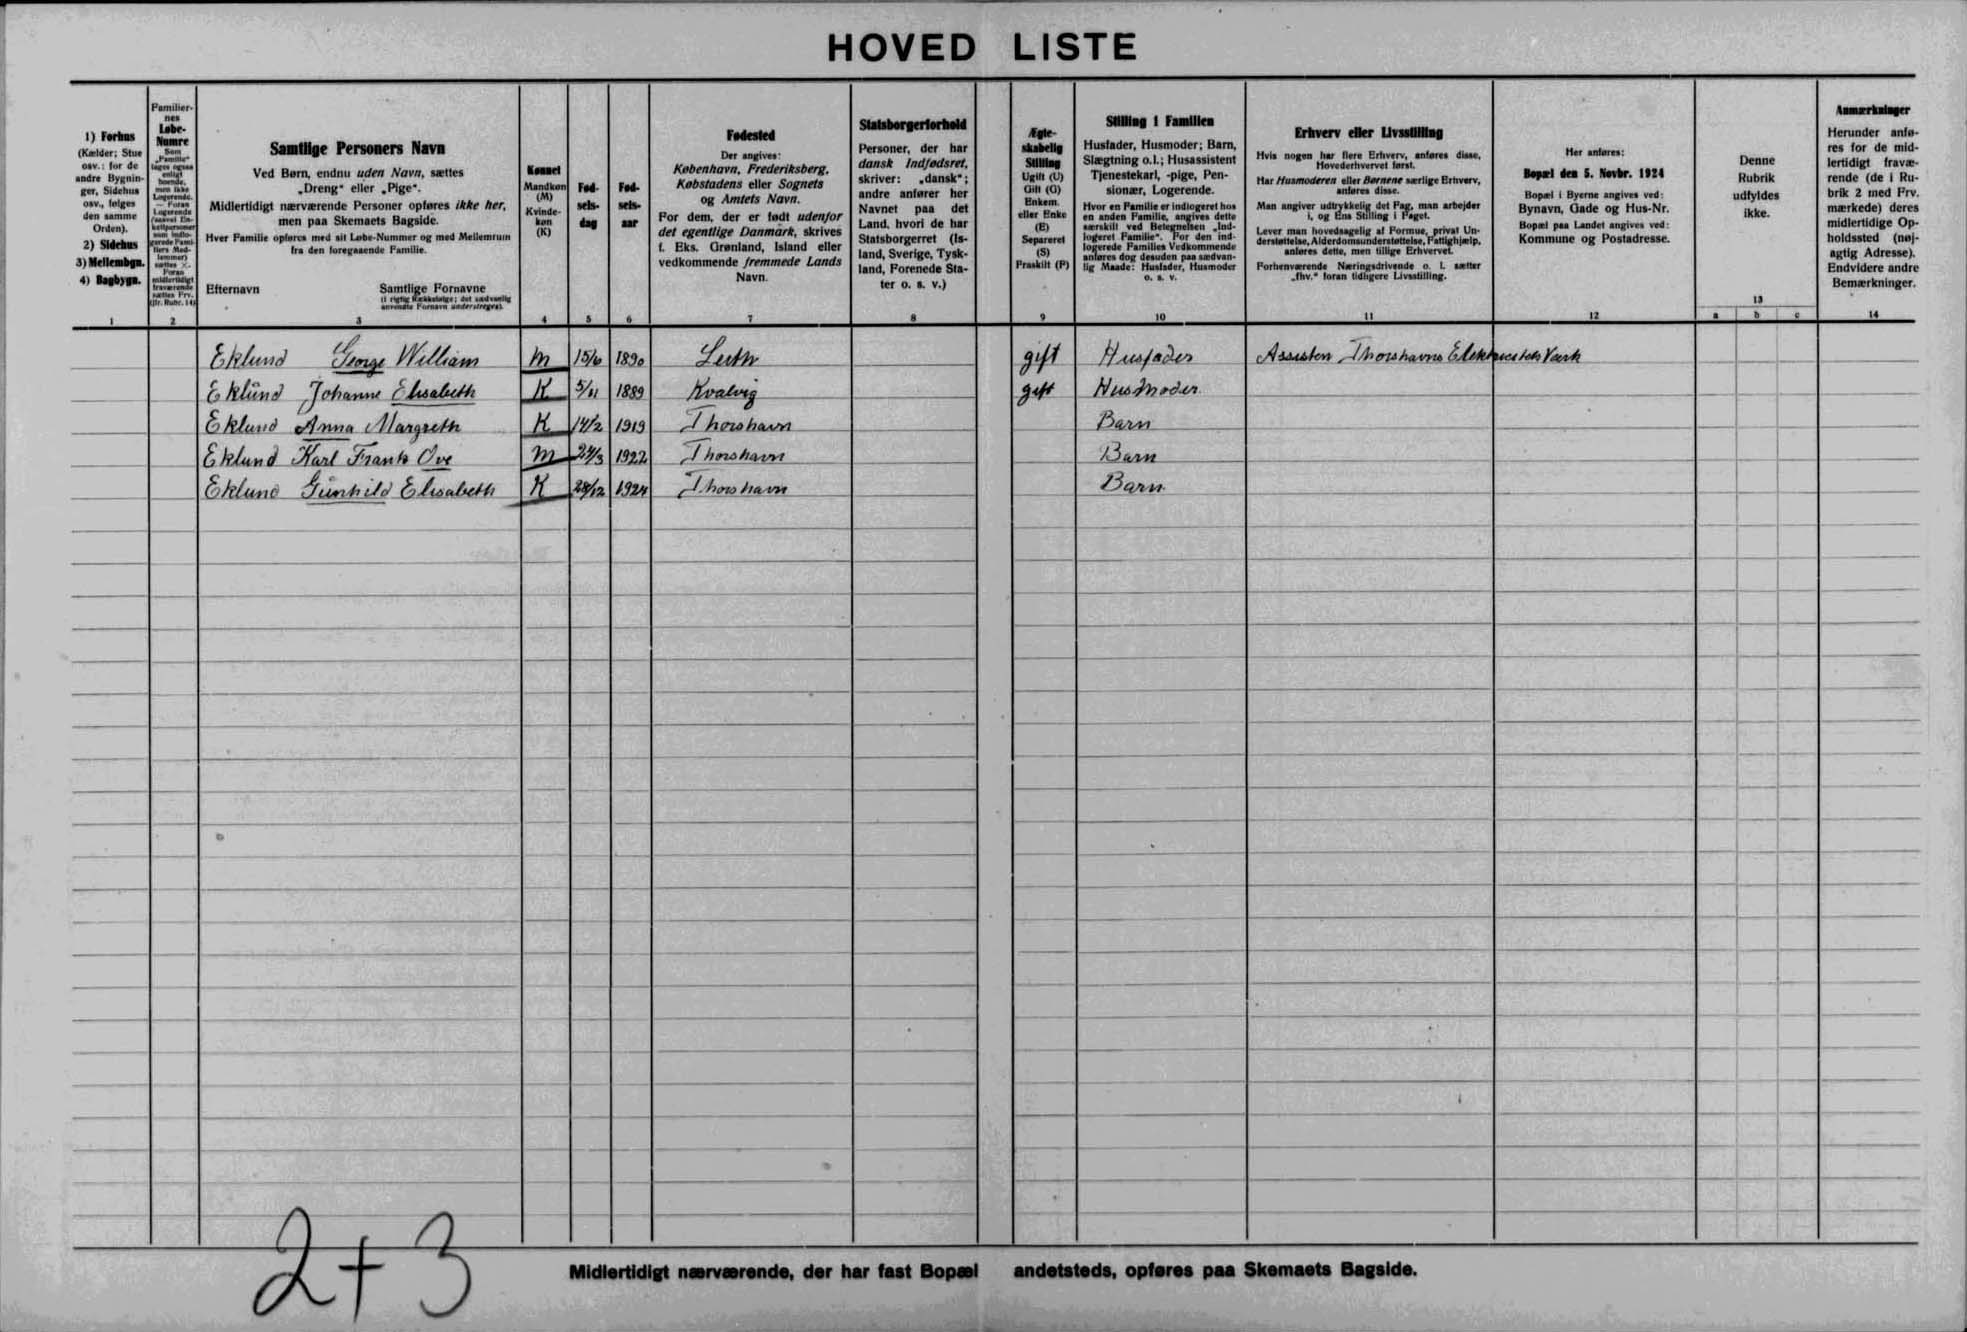 HOVED LISTE
1) Forhus
(Kælder; Stue
osv.: for de
andre Bygnin-
ger, Sidehus
osv., følges
den samme
Orden).
2) Sidehus
3) Mellembgn.
4) Bagbygn.
1
Familier-
nes
Løbe-
Numre
Som
„Familie“
tages ogsaa
enligt
boende,
men ikke
Logerende.
— Foran
Logerende
(saavel En-
keltpersoner
som indlo-
gerede Fami-
liers Med-
lemmer)
sættes ×.
Foran
midlertidigt
fraværende
sættes Frv.
(jfr. Rubr. 14)
2
Samtlige Personers Navn
Ved Børn, endnu uden Navn, sættes
„Dreng“ eller „Pige“.
Midlertidigt nærværende Personer opføres ikke her,
men paa Skemaets Bagside.
Hver Familie opføres med sit Løbe-Nummer og med Mellemrum
fra den foregaaende Familie.
Efternavn Samtlige Fornavne
(i rigtig Rækkefølge; det sædvanlig
anvendte Fornavn understreges).
3
Kønnet
Mandkøn
(M)
Kvinde-
køn
(K)
4
Fød-
sels-
dag
5
Fød-
sels-
aar
6
Fødested
Der angives:
København, Frederiksberg,
Købstadens eller Sognets
og Amtets Navn.
For dem, der er født udenfor
det egentlige Danmark, skrives
f. Eks. Grønland, Island eller
vedkommende fremmede Lands
Navn.
7
Statsborgerforhold
Personer, der har
dansk Indfødsret,
skriver: „dansk“;
andre anfører her
Navnet paa det
Land, hvori de har
Statsborgerret (Is-
land, Sverige, Tysk-
land, Forenede Sta-
ter o. s. v.)
8
Ægte-
skabelig
Stilling
Ugift (U)
Gift (G)
Enkem.
eller Enke
(E)
Separeret
(S)
Fraskilt (F)
9
Stilling i Familien
Husfader, Husmoder; Barn,
Slægtning o.l.; Husassistent
Tjenestekarl, -pige, Pen-
sionær, Logerende.
Hvor en Familie er indlogeret hos
en anden Familie, angives dette
særskilt ved Betegnelsen „Ind-
logeret Familie“. For den ind-
logerede Families Vedkommende
anføres dog desuden paa sædvan-
lig Maade: Husfader, Husmoder
o. s. v.
10
Erhverv eller Livsstilling
Hvis nogen har flere Erhverv, anføres disse,
Hovederhvervet først.
Har Husmoderen eller Børnene særlige Erhverv,
anføres disse.
Man angiver udtrykkelig det Fag, man arbejder
i, og Ens Stilling i Faget.
Lever man hovedsagelig af Formue, privat Un-
derstøttelse, Alderdomsunderstøttelse, Fattighjælp,
anføres dette, men tillige Erhvervet.
Forhenværende Næringsdrivende o. l. sætter
„fhv.“ foran tidligere Livsstilling.
11
Her anføres:
Bopæl den 5. Novbr. 1924
Bopæl i Byerne angives ved:
Bynavn, Gade og Hus-Nr.
Bopæl paa Landet angives ved:
Kommune og Postadresse.
12
Denne
Rubrik
udfyldes
ikke.
13
a b c
Anmærkninger
Herunder anfø-
res for de mid-
lertidigt fravæ-
rende (de i Ru-
brik 2 med Frv.
mærkede) deres
midlertidige Op-
holdssted (nøj-
agtig Adresse).
Endvidere andre
Bemærkninger.
14
Eklund George William M 15/6 1890 Leith gift Husfader Assisten Thorshavns Elektricitets Værk
Eklund Johanne Elisabeth K 5/11 1889 Kvalvig gift Husmoder
Eklund Anna Margreth K 14/2 1919 Thorshavn Barn
Eklund Karl Frank Ove M 24/3 1922 Thorshavn Barn
Eklund Gunhild Elisabeth K 28/12 1924 Thorshavn Barn
2+3
Midlertidigt nærværende, der har fast Bopæl andetsteds, opføres paa Skemaets Bagside.